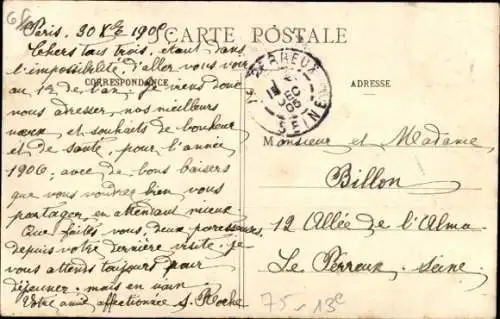 Paris, 30 Xbre 1905
CARTE POSTALE
Chers tous trois, étant dans
l'impossibilité d'aller vous voir
CORRESPONDANCE
au 12 de l'av. Je viens donc
vous adresser, nos meilleurs
vœux et souhaits de bonheur
et de santé, pour l'année
1906; avec de bons baisers
que vous voudrez bien vous
partager, en attendant mieux
Que faites vous, deux paresseuses,
depuis votre dernière visite. je
vous attends toujours pour
déjeuner, mais en vain.
Votre amie affectionnée S. Roche
LE PERREUX
DEC
05
SEINE
ADRESSE
Monsieur et Madame
Billon
12 Allée de l'Alma
Le Perreux. Seine
75-13e